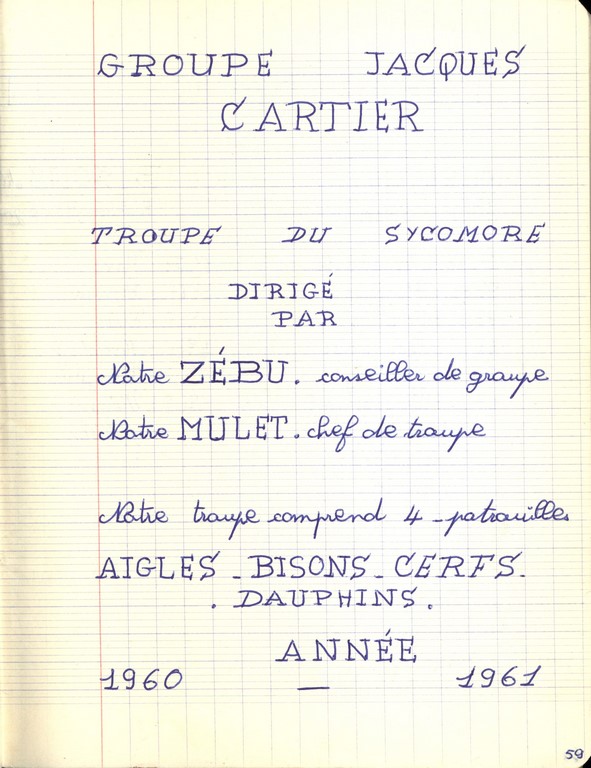 GROUPE JACQUES
CARTIER
TROUPE DU SYCOMORE
DIRIGÉ
PAR
Notre ZÉBU. conseiller de groupe
Notre MULET. chef de troupe
Notre troupe comprend 4 - patrouilles
AIGLES - BISONS - CERFS.
. DAUPHINS.
ANNÉE
1960 — 1961
59